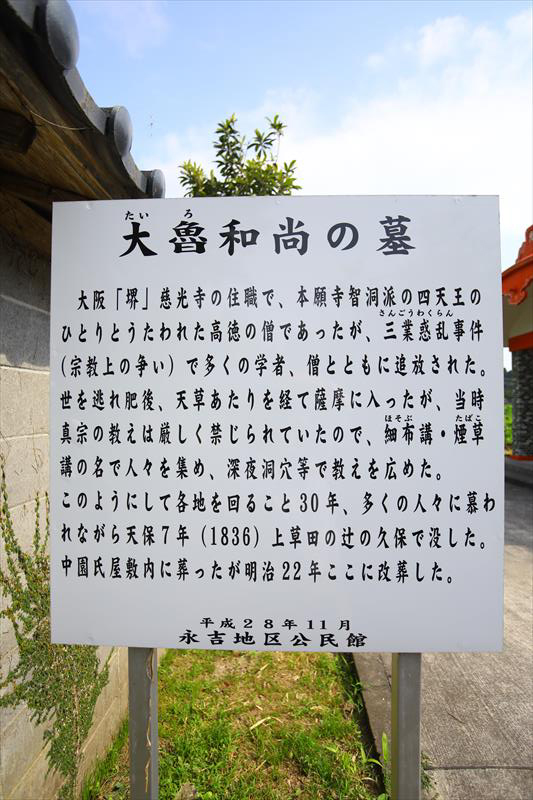 たいろ
大魯和尚の墓
大阪「堺」慈光寺の住職で、本願寺智洞派の四天王の
さんごうわくらん
ひとりとうたわれた高徳の僧であったが、三業惑乱事件
(宗教上の争い)で多くの学者、僧とともに追放された。
世を逃れ肥後、天草あたりを経て薩摩に入ったが、当時
ほそぶ たばこ
真宗の教えは厳しく禁じられていたので、細布講・煙草
講の名で人々を集め、深夜洞穴等で教えを広めた。
このようにして各地を回ること30年、多くの人々に慕わ
れながら天保7年(1836)上草田の辻の久保で没した。
中園氏屋敷内に葬ったが明治22年ここに改葬した。
平成28年11月
永吉地区公民館